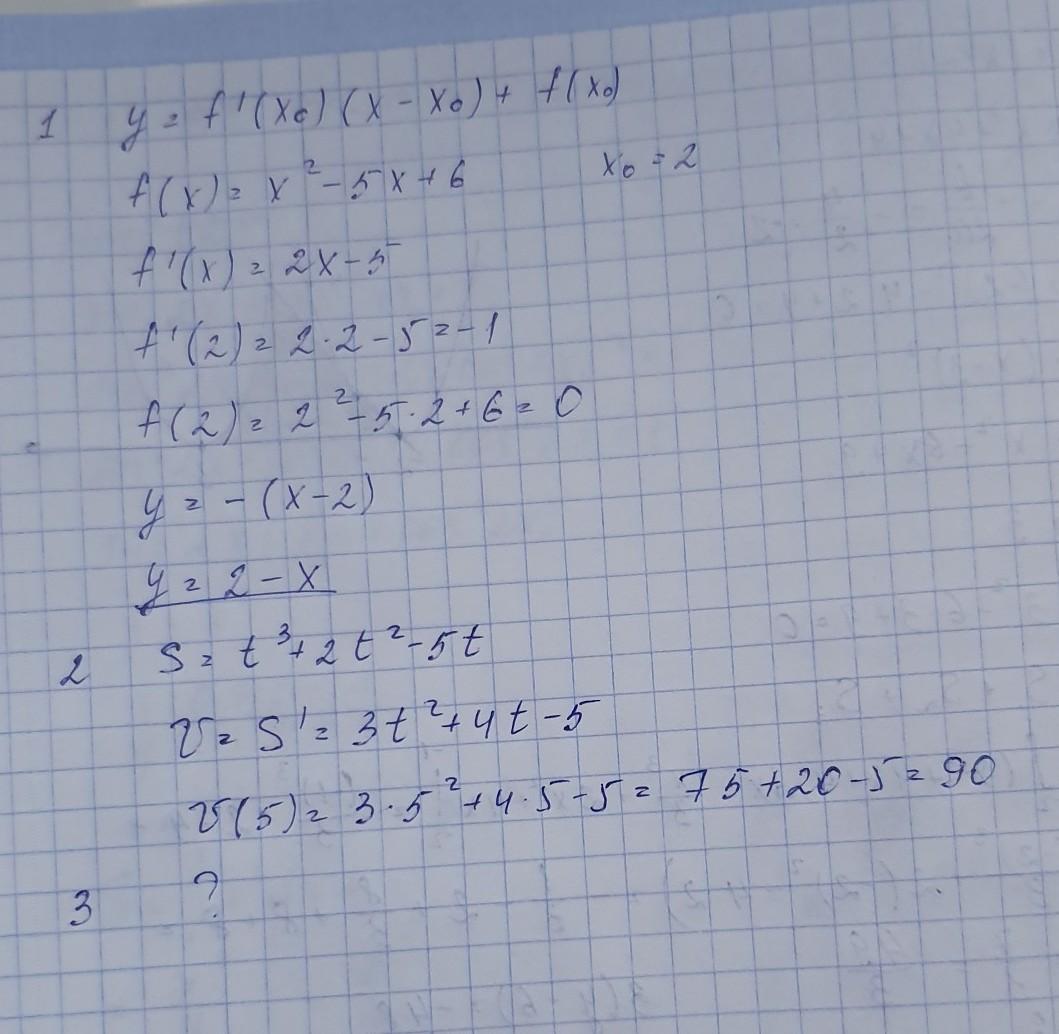 1 y = f'(x₀)(x - x₀) + f(x₀)
f(x) = x² - 5x + 6 x₀ = 2
f'(x) = 2x - 5
f'(2) = 2·2 - 5 = -1
f(2) = 2² - 5·2 + 6 = 0
y = -(x-2)
y = 2 - x
2 S = t³ + 2t² - 5t
v = S' = 3t² + 4t - 5
v(5) = 3·5² + 4·5 - 5 = 75 + 20 - 5 = 90
3 ?